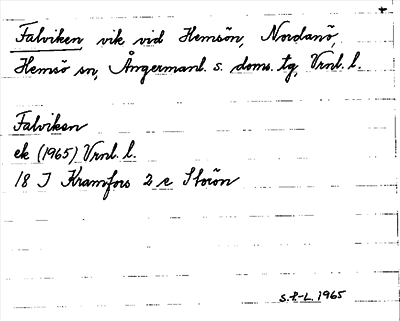 Falviken vik vid Hemsön, Nordanö,
Hemsö sn, Ångermanl. s. doms. tg, Vrnl. l.
Falviken
ek (1965) Vrnl. l.
18 J Kramfors 2 e Storön
S.P-L. 1965